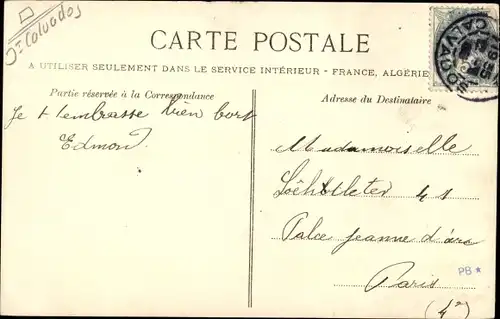 Dt Calvados
CARTE POSTALE
A UTILISER SEULEMENT DANS LE SERVICE INTÉRIEUR - FRANCE, ALGÉRIE
Partie réservée à la Correspondance
Adresse du Destinataire
CALVADOS
Je t'embrasse bien fort
Edmond
Mademoiselle
41
Place Jeanne d'arc
Paris
PB *